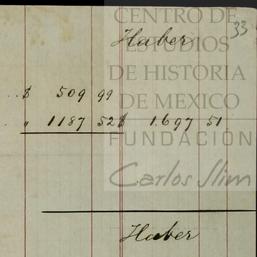 CENTRO DE
Haber 33
ESTUDIOS
DE HISTORIA
$ 509 99
DE MEXICO
" 1187 52 $ 1.697 51
FUNDACIÓN
Carlos Slim
Haber